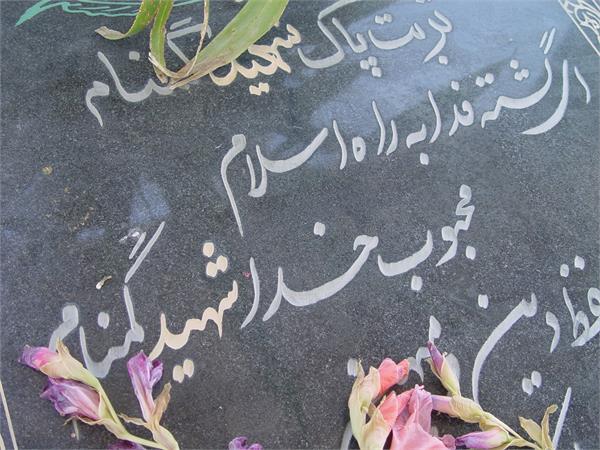 تربت پاک شهید گمنام
گشته فدا به راه اسلام
محبوب خدا شهید گمنام
دین